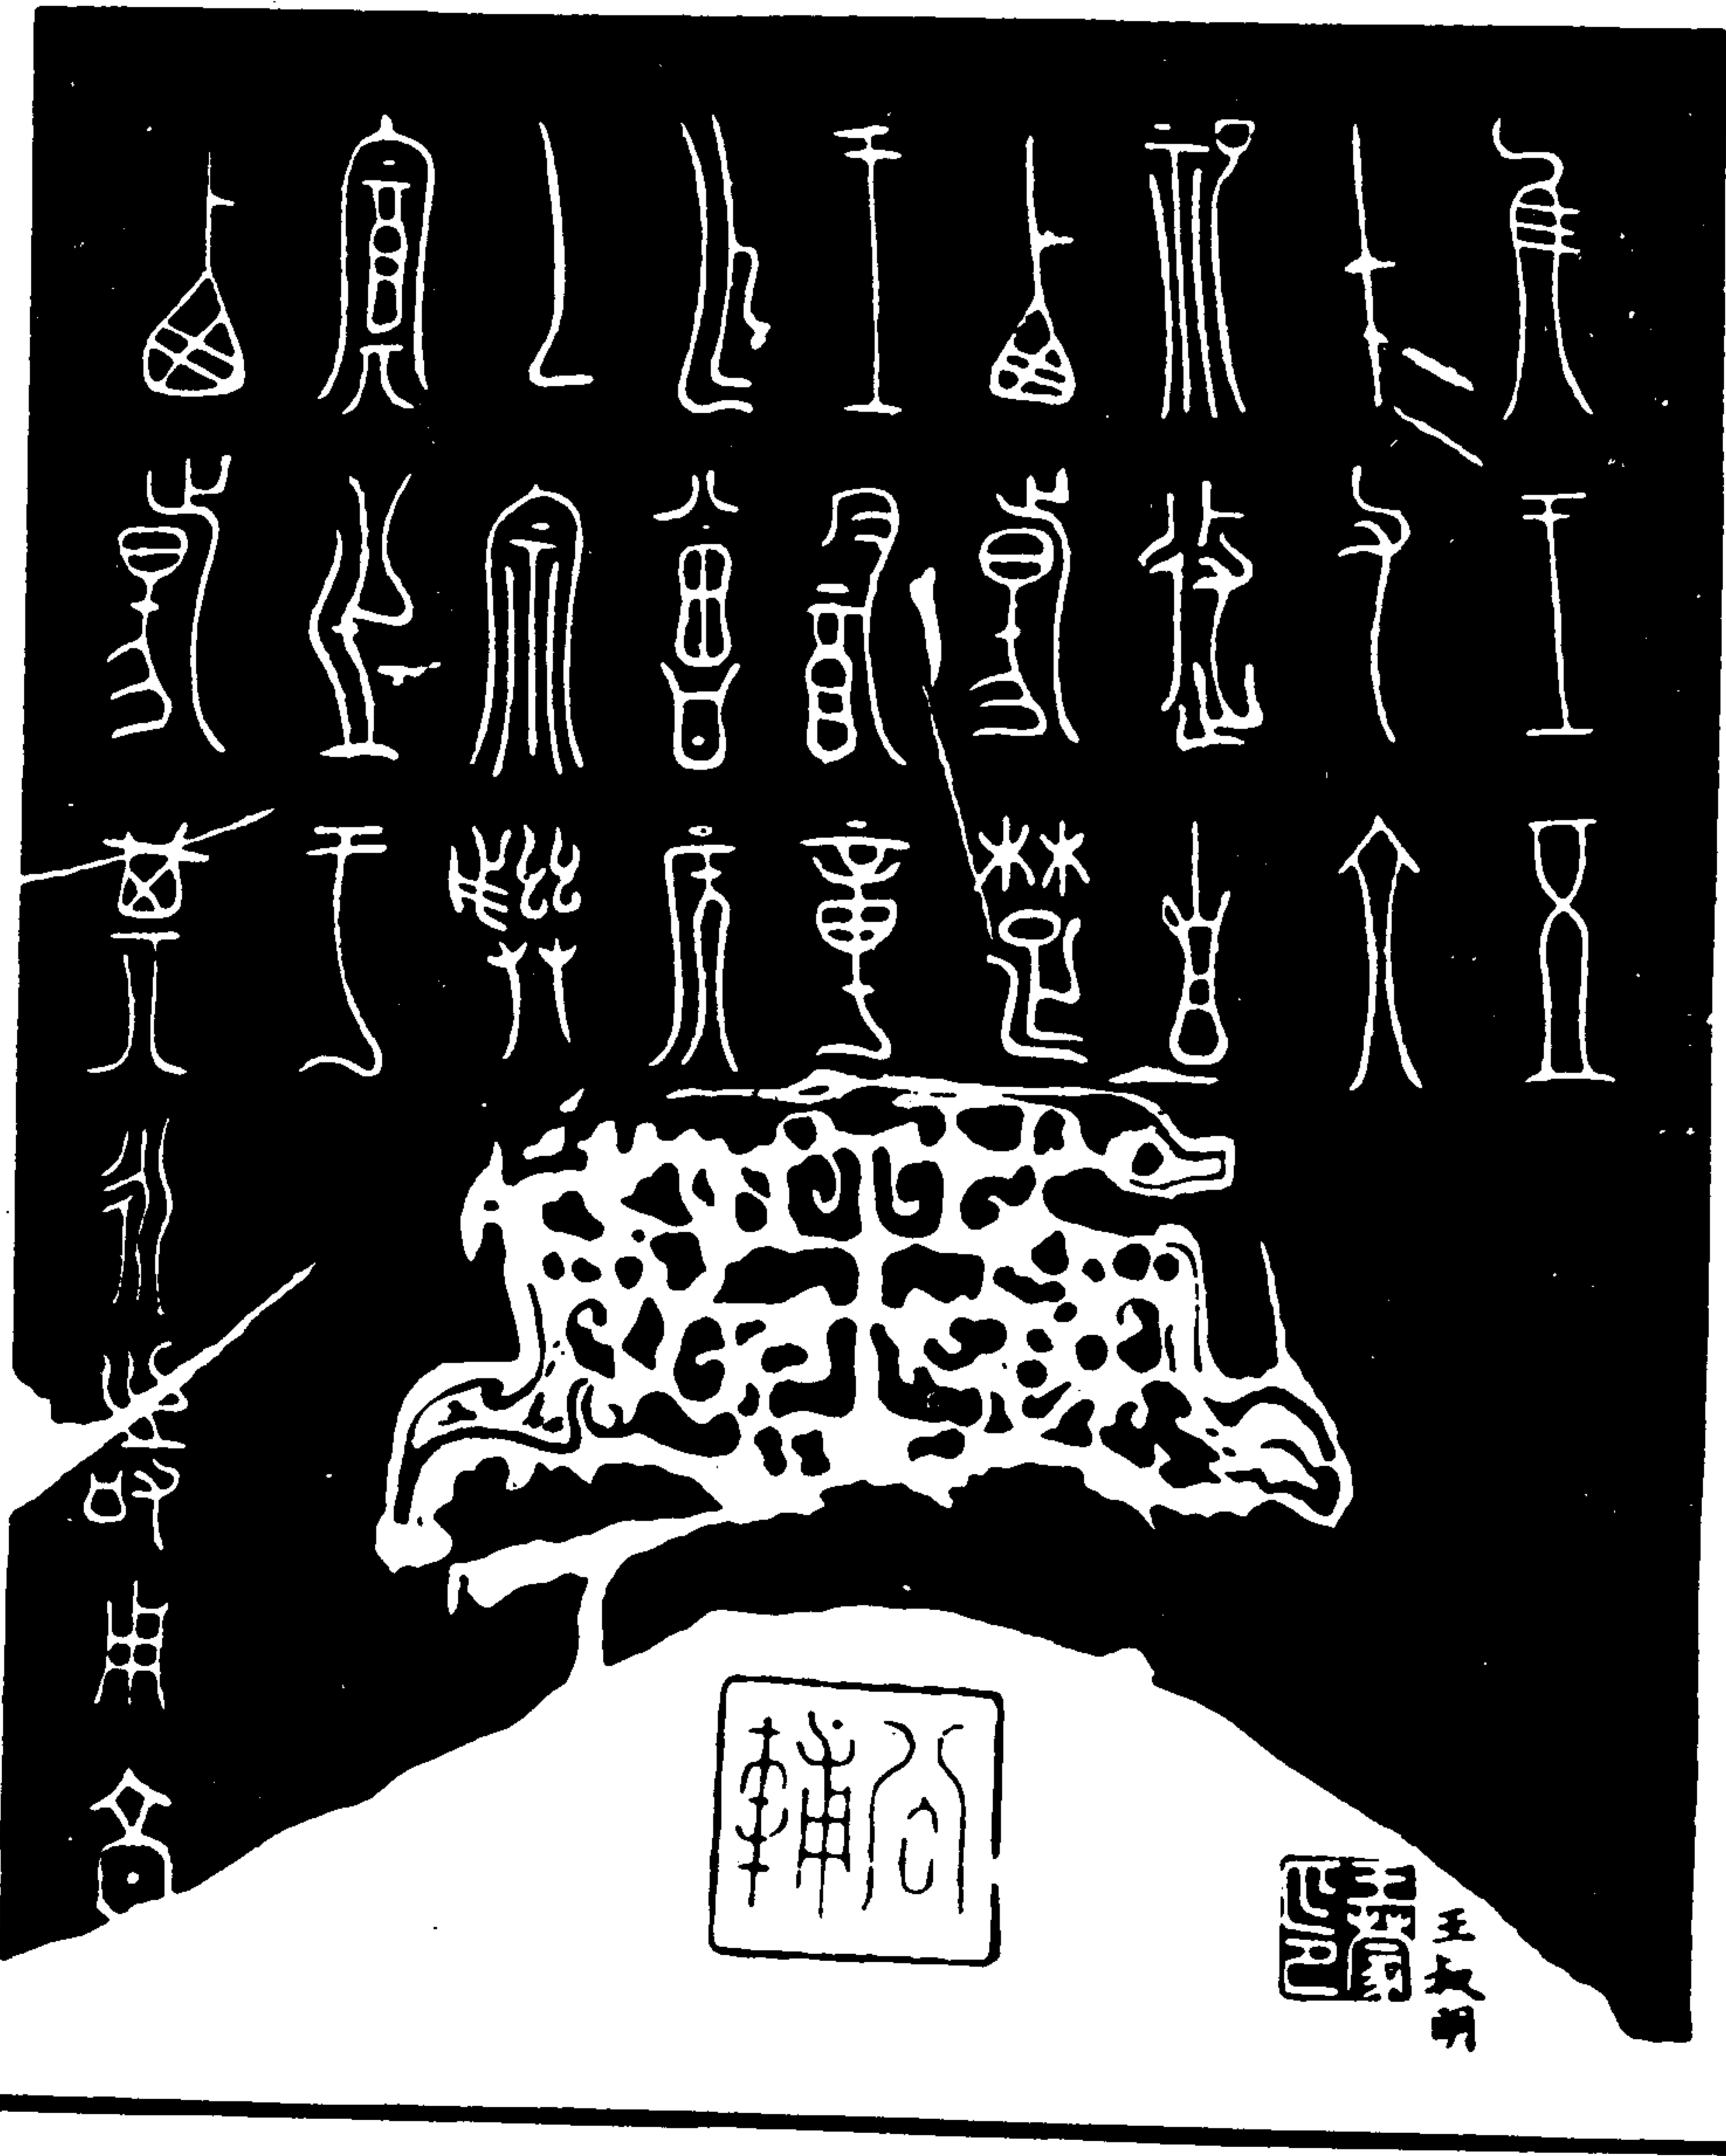 隹王五
十又六
祀返自
西陽楚
王酓章
乍曾侯
乙宗彝
奠之于
西陽其永𢭏用享